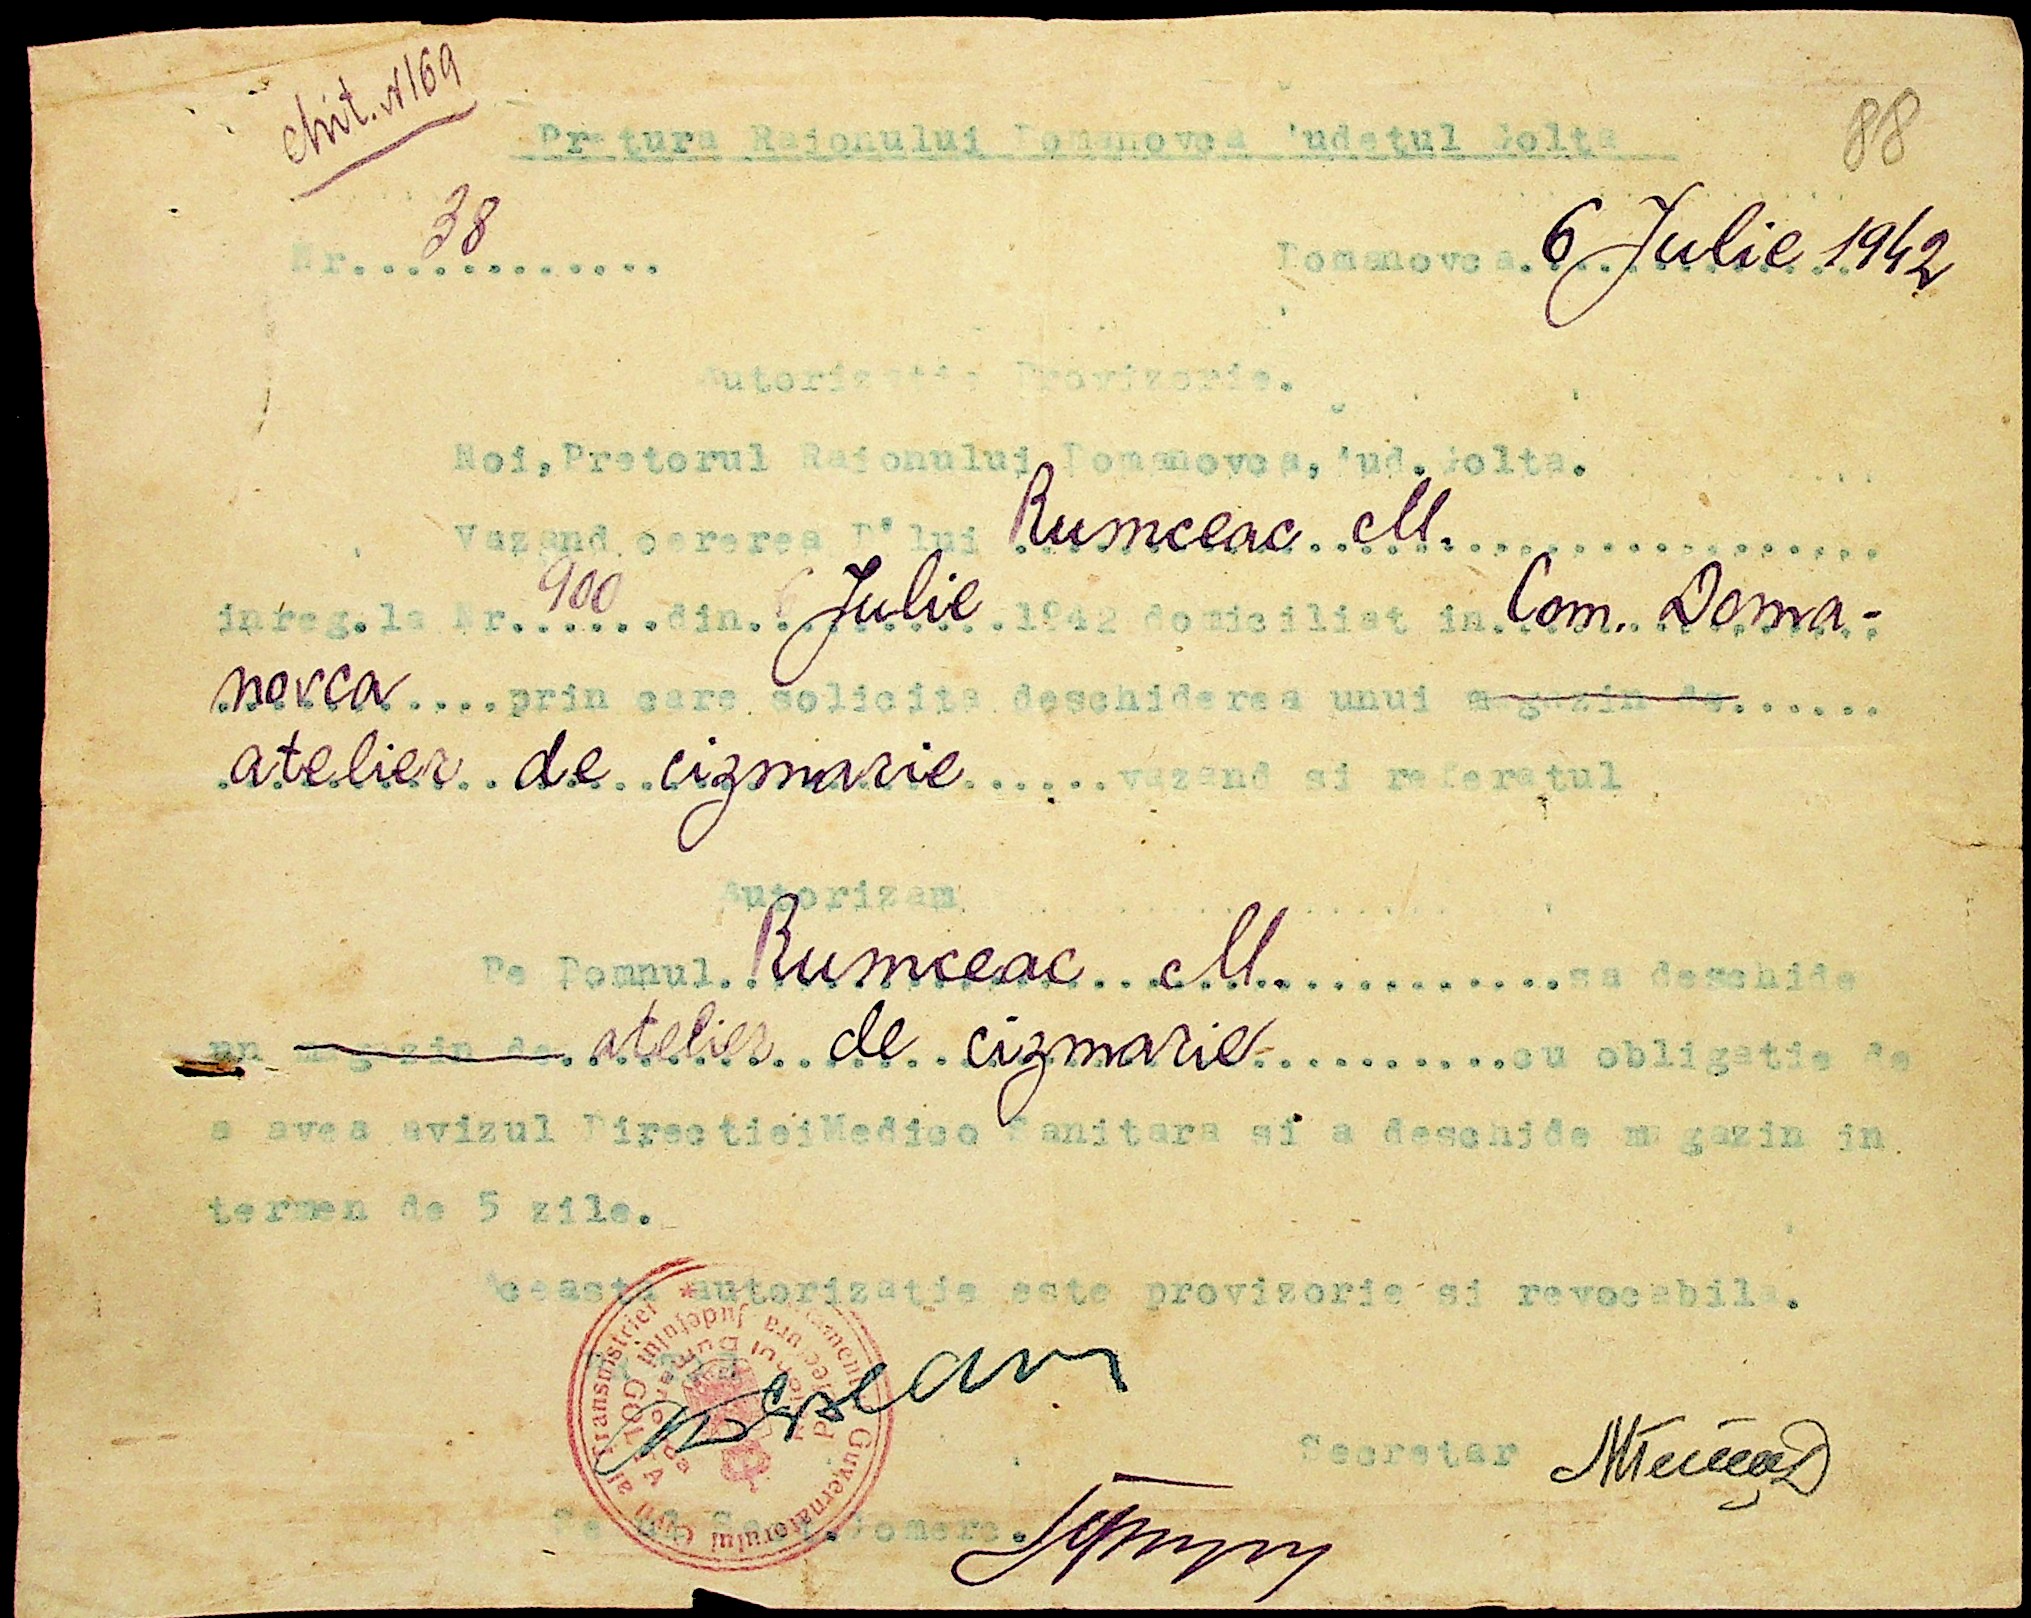 chit. N 169
88
Pretura Raionului Domanovca Judeţul Golta
Nr. 38
Domanovca. 6 Julie 1942
Autorizatie Provizorie.
Noi, Pretorul Raionului Domanovca, Jud. Golta.
Vazand cererea D'lui Rumceac M.
inreg. la Nr. 900 din 6 Julie 1942 domiciliat in Com. Doma-
novca prin care solicita deschiderea unui magazin de
atelier de cizmarie vazand si referatul
Autorizam
Pe Domnul Rumceac M. sa deschide
un magazin de atelier de cizmarie cu obligatie de
a avea avizul Directiei Medico Sanitara si a deschide magazin in
termen de 5 zile.
Aceasta autorizatie este provizorie si revocabila.
Secretar
Comerc.
Guvernământul Civil al Transnistriei
Prefectura Judeţului GOLTA